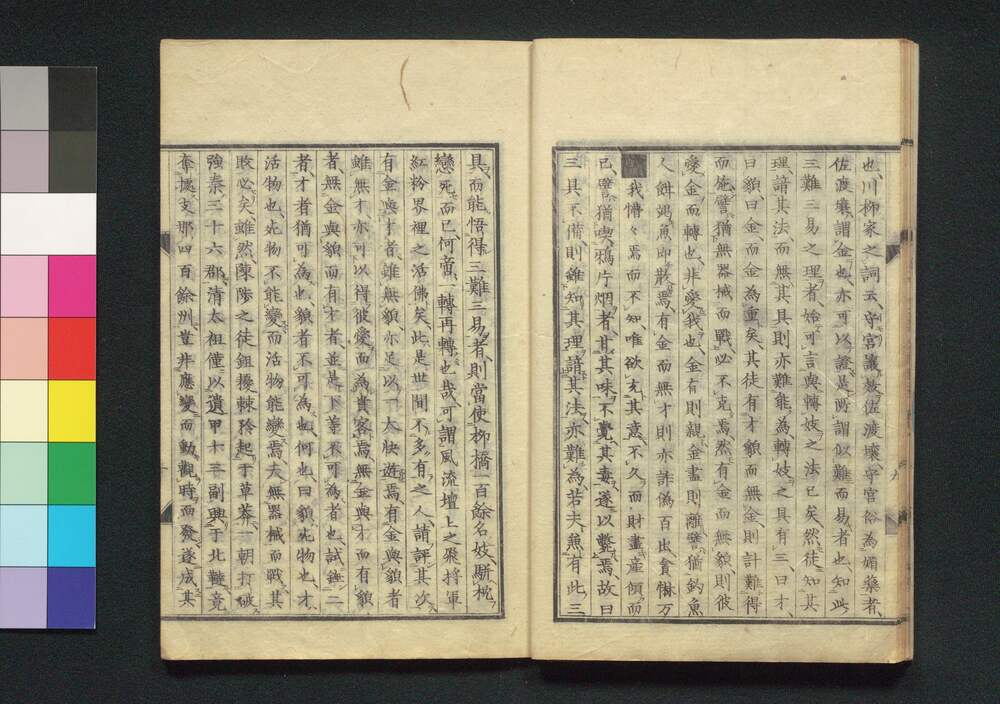 也、川柳家之詞云、守宮讓於佐渡壤、守宮俗為媚藥者、
佐渡壤謂金也、亦可以證是所謂似難而易者也、知此
三難三易之理者、始可言與轉妓之法已矣、然徒知其
理諳其法而無其具則亦難能為轉妓之具有三、曰才、
曰貌、曰金而金為重矣、其徒有才貌而無金、則計難得
而施、譬猶無器械而戰、必不克焉、然有金而無貌則彼
愛金而轉也、非愛我也、金有則親金盡則離、譬猶釣魚
人餌竭魚即散焉、有金而無才則亦詐偽百出貪惏万
我懵々焉而不知唯欲充其意、不久而財盡産傾而
已、譬猶喫鴉片烟者、甘其味不覺其毒遂以斃焉、故曰
三具不備、則雖知其理諳其法亦難為、若夫兼有此三
具、而能悟得三難三易者、則當使柳橋一百餘名妓、駢枕
戀死而已、何啻一轉再轉也哉、可謂風流壇上之飛将軍
紅粉界裡之活佛矣、此是世間不多有之人、請評其次
有金與才者、雖無貌亦足以一大快遊焉、有金與貌者
雖無才亦可以得彼愛而為貴客焉、無金與才而有貌
者、無金與貌而有才者並是下等不可為者也、試錘二
者、才者猶可為也、貌者不可為也、何也、曰貌死物也、才
活物也、死物不能變而活物能變焉、夫無器械而戰、其
敗必矣、雖然陳渉之徒鉏擾棘矜起于草莽、一朝打破
強秦三十六郡、清太祖僅以遺甲十三副興于北韃、竟
奪據支那四百餘州、豈非應變而動、觀時而發、遂成其